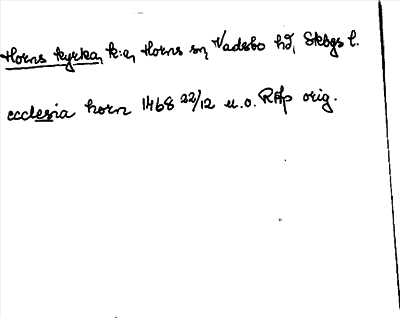 Horns kyrka, k:a, Horns sn, Vadsbo hd, Skbgs l.
ecclesia horn 1468 22/12 u.o. RAp orig.